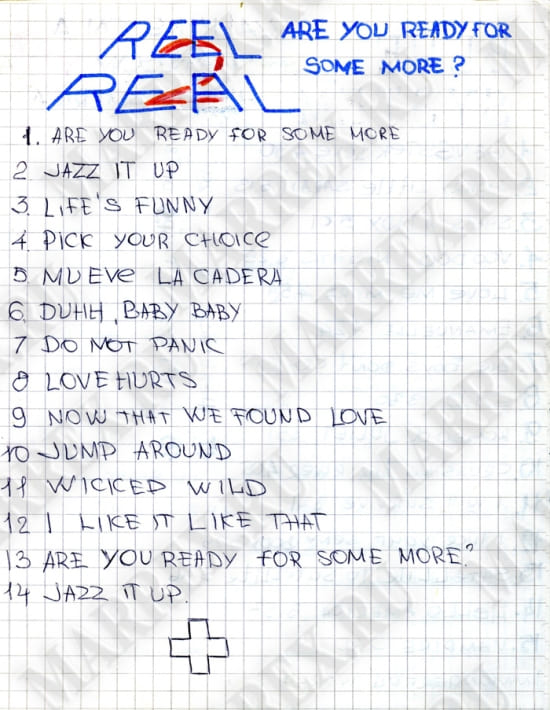 REEL 2 REAL
ARE YOU READY FOR
SOME MORE?
1. ARE YOU READY FOR SOME MORE
2 JAZZ IT UP
3. LIFE'S FUNNY
4. PICK YOUR CHOICE
5 MUEVE LA CADERA
6. DUHH, BABY BABY
7 DO NOT PANIC
8 LOVE HURTS
9 NOW THAT WE FOUND LOVE
10 JUMP AROUND
11 WICKED WILD
12 I LIKE IT LIKE THAT
13 ARE YOU READY FOR SOME MORE?
14 JAZZ IT UP.
MARREX.RU